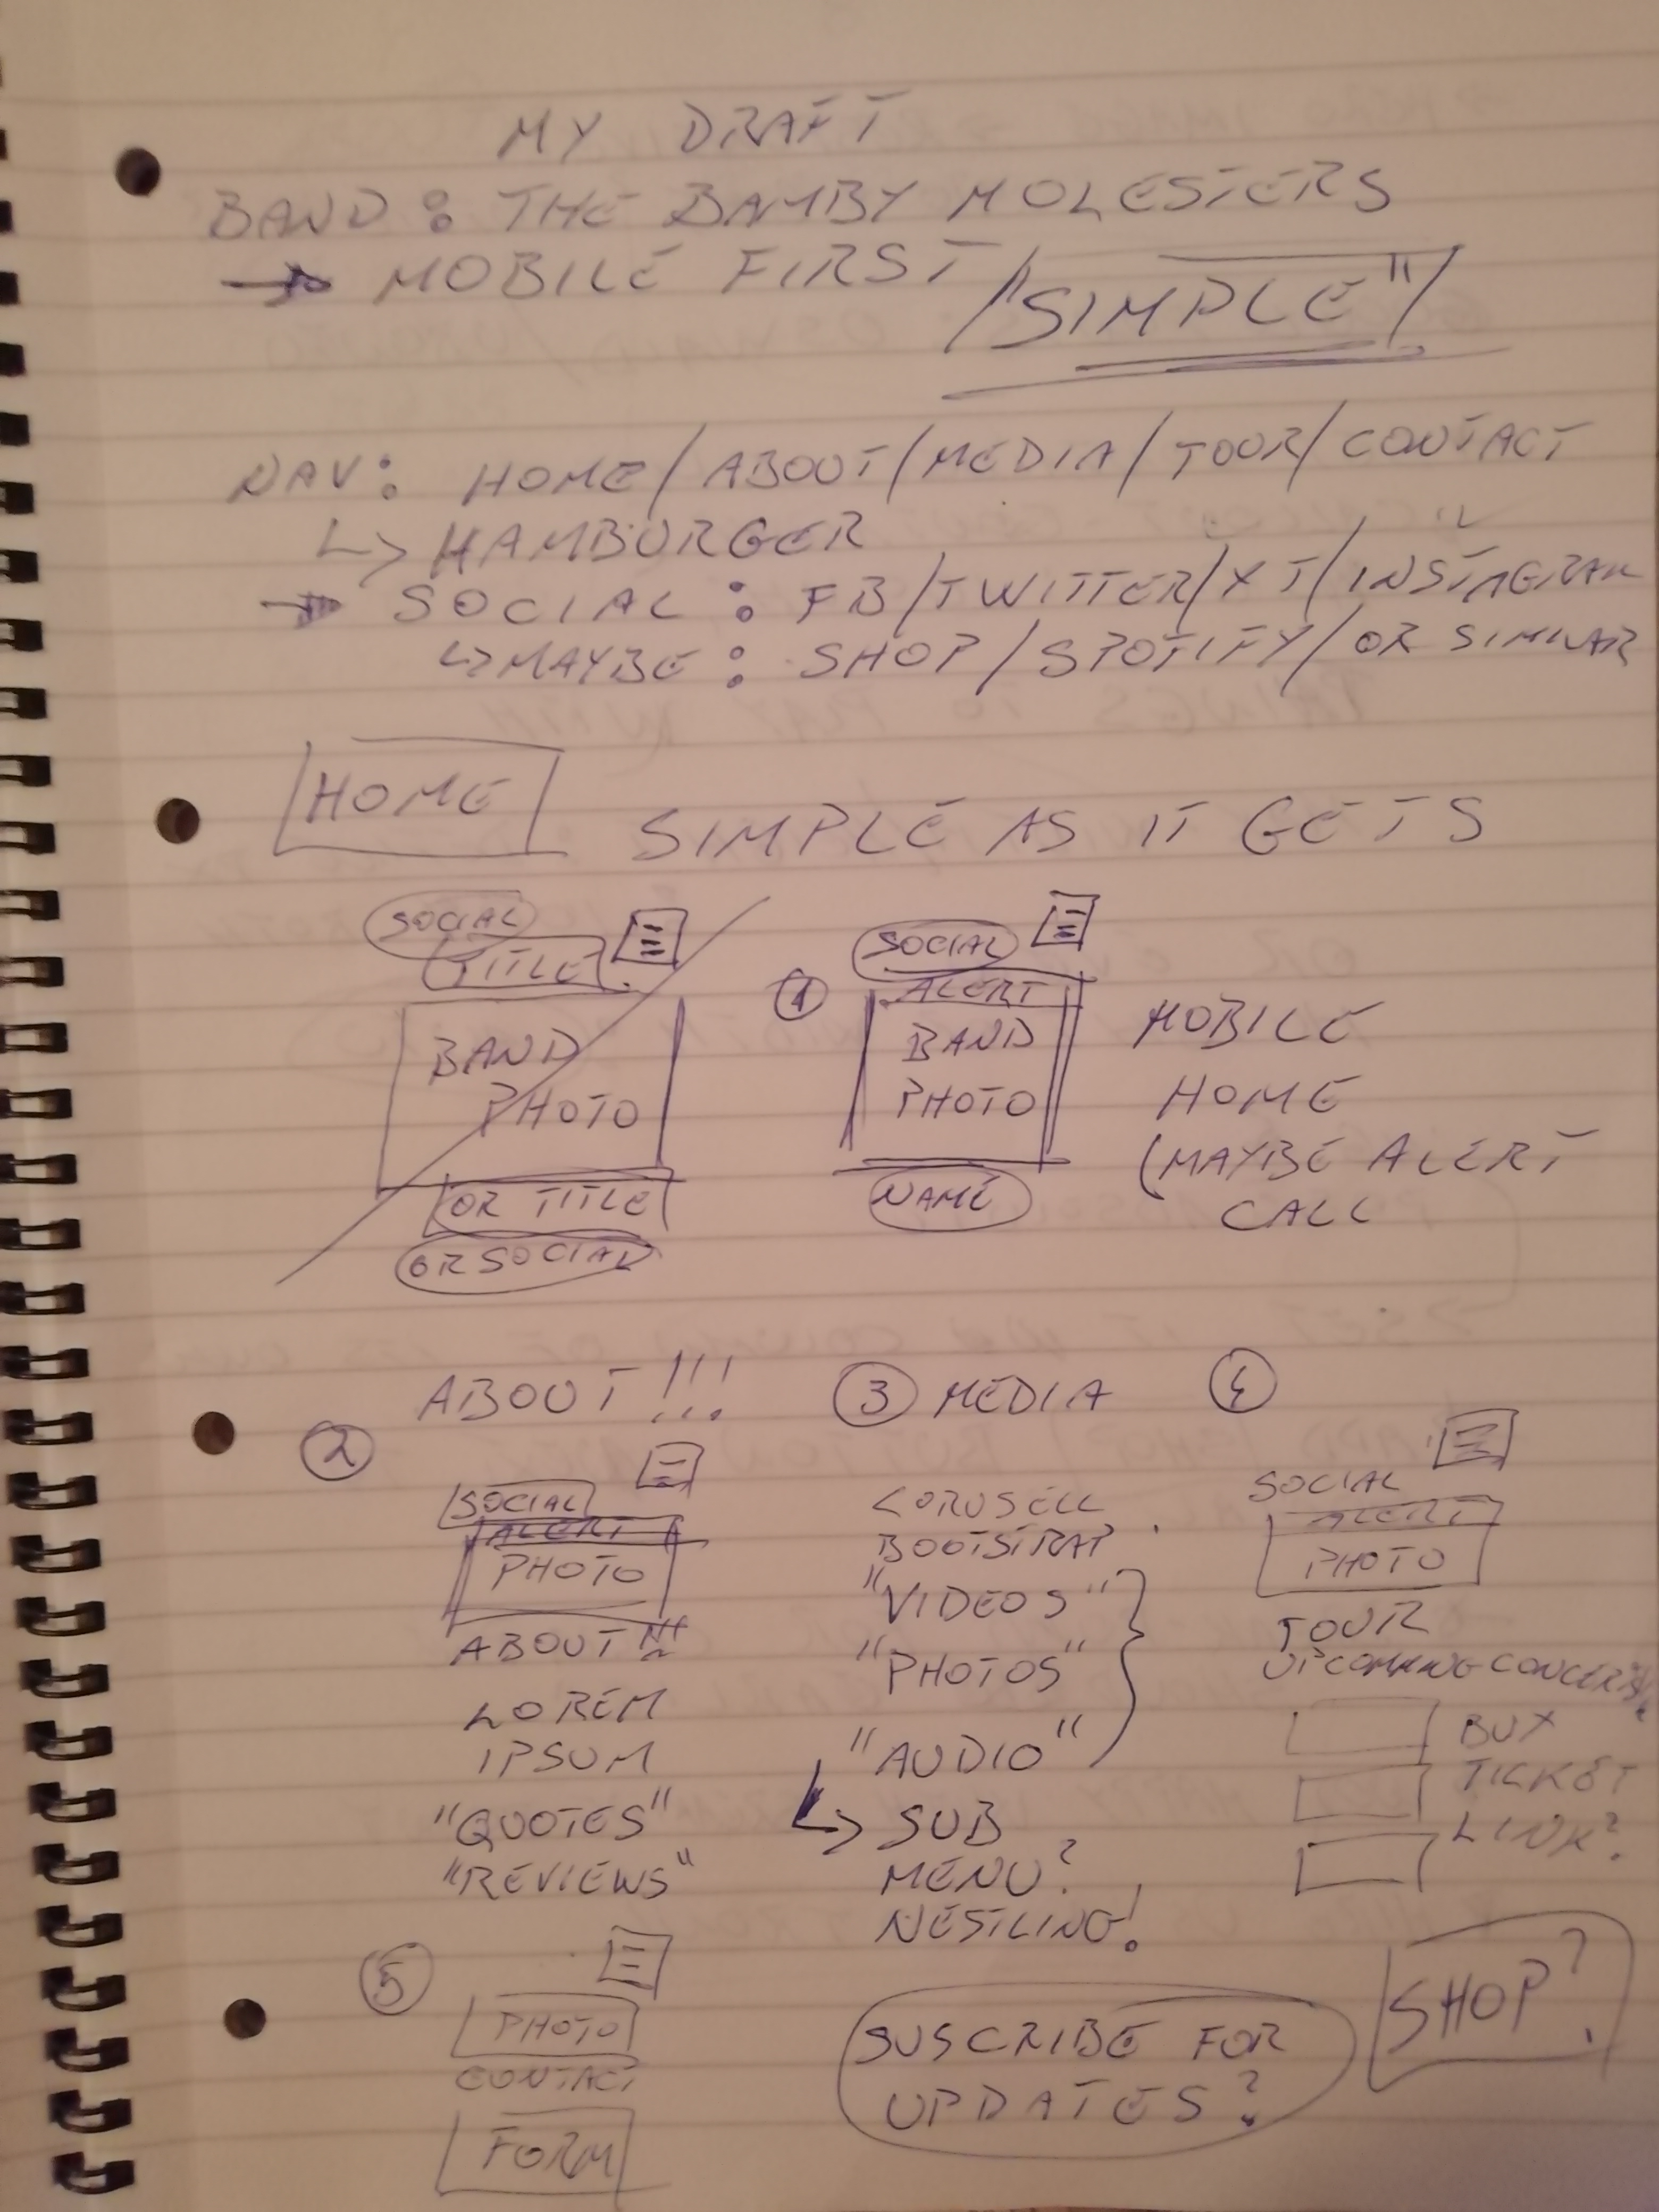 MY DRAFT
BAND: THE BAMBY MOLESTERS
→ MOBILE FIRST /"SIMPLE"/
NAV: HOME/ABOUT/MEDIA/TOUR/CONTACT
↳ HAMBURGER
→ SOCIAL: FB/TWITTER/YT/INSTAGRAM
↳ MAYBE: SHOP/SPOTIFY/OR SIMILAR
HOME
SIMPLE AS IT GETS
SOCIAL
TITLE
BAND
PHOTO
OR TITLE
OR SOCIAL
1
SOCIAL
ALERT
BAND
PHOTO
NAME
MOBILE
HOME
(MAYBE ALERT
CALL
2
ABOUT!!!
SOCIAL
ALERT
PHOTO
ABOUT
LOREM
IPSUM
"QUOTES"
"REVIEWS"
3 MEDIA
CORUSELL
BOOTSTRAP
"VIDEOS"
"PHOTOS"
"AUDIO"
↳ SUB
MENU?
NESTLING!
4
SOCIAL
ALERT
PHOTO
TOUR
BUY
TICKET
LINK?
5
PHOTO
CONTACT
FORM
SUSCRIBE FOR
UPDATES?
SHOP?